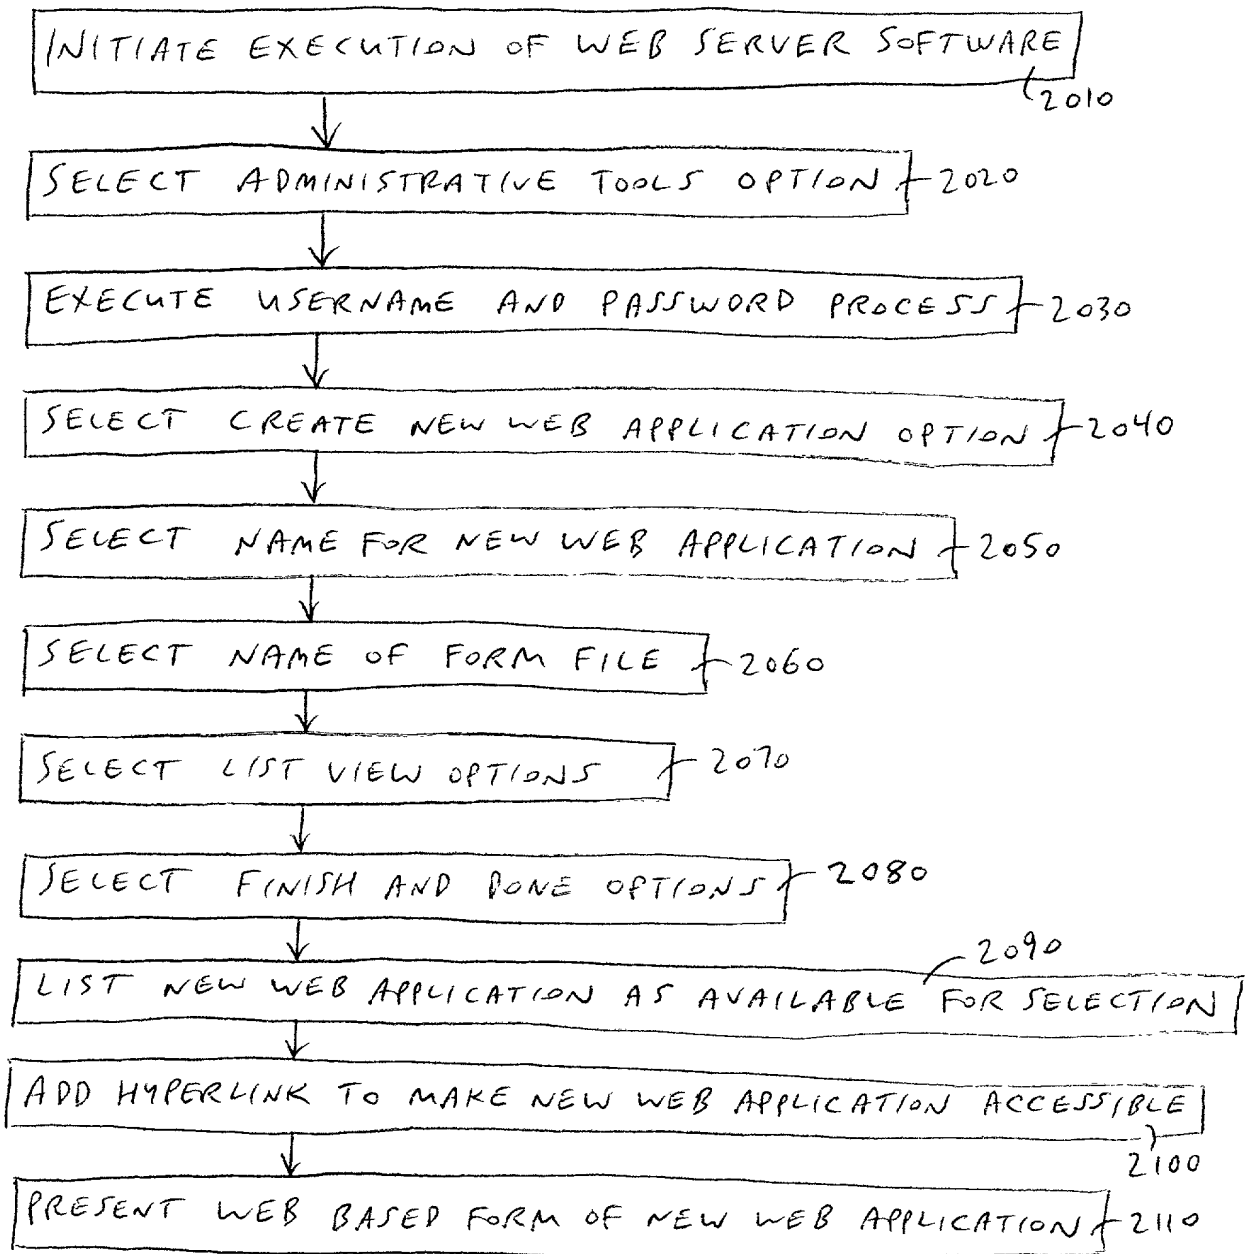 INITIATE EXECUTION OF WEB SERVER SOFTWARE
2010
SELECT ADMINISTRATIVE TOOLS OPTION 2020
EXECUTE USERNAME AND PASSWORD PROCESS 2030
SELECT CREATE NEW WEB APPLICATION OPTION 2040
SELECT NAME FOR NEW WEB APPLICATION 2050
SELECT NAME OF FORM FILE 2060
SELECT LIST VIEW OPTIONS 2070
SELECT FINISH AND DONE OPTIONS 2080
2090
LIST NEW WEB APPLICATION AS AVAILABLE FOR SELECTION
ADD HYPERLINK TO MAKE NEW WEB APPLICATION ACCESSIBLE
2100
PRESENT WEB BASED FORM OF NEW WEB APPLICATION 2110